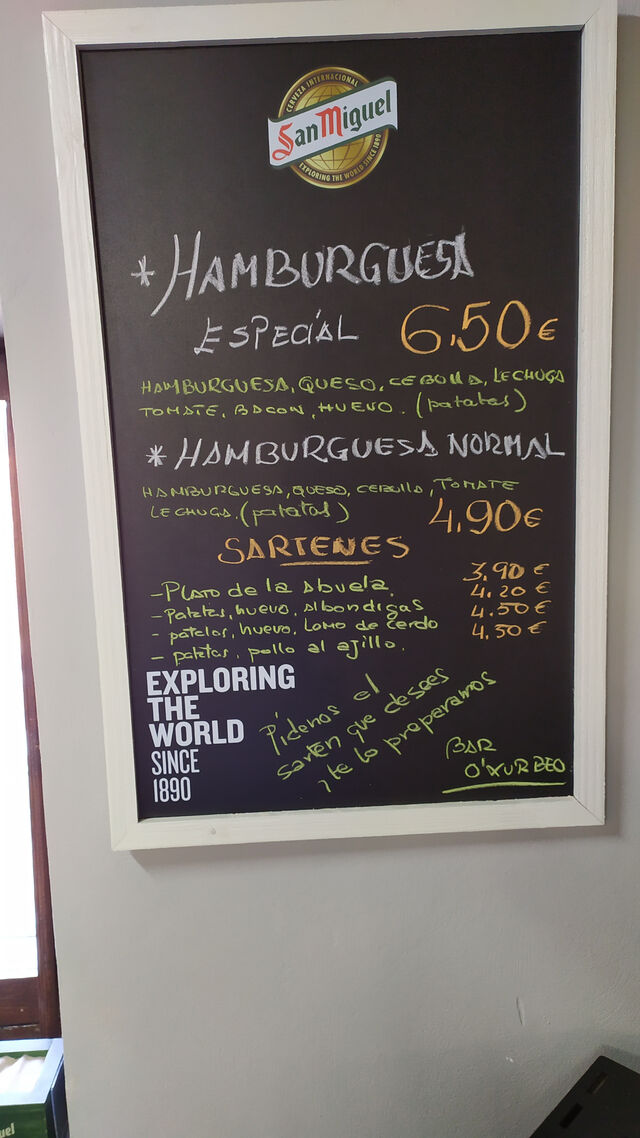 CERVEZA INTERNACIONAL
San Miguel
EXPLORING THE WORLD SINCE 1890
* HAMBURGUESA
ESPECIAL 6,50€
HAMBURGUESA, QUESO, CEBOLLA, LECHUGA
TOMATE, BACON, HUEVO. (patatas)
* HAMBURGUESA NORMAL
HAMBURGUESA, QUESO, CEBOLLA, TOMATE
LECHUGA, (patatas) 4,90€
SARTENES
- PLATO de la Abuela, 3,90 €
- Patatas, huevo, Albondigas 4.20 €
- patatas, huevo, Lomo de cerdo 4.50 €
- patatas, pollo al ajillo. 4.50 €
EXPLORING
THE
WORLD
SINCE
1890
Pídenos el
sartén que desees
y te lo preparamos
BAR
O'XURBEO
uel